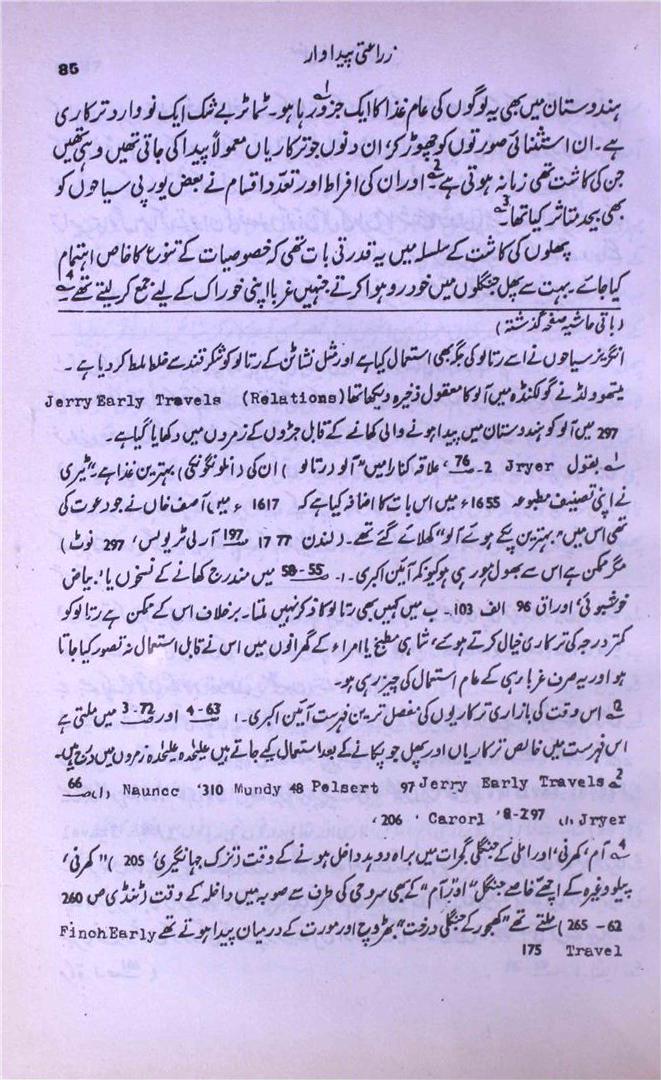 زراعتی پیداوار
86
ہندوستان میں بھی یہ لوگوں کی عام غذا کا ایک جزو رہا ہو۔ ٹماٹر بے شک ایک نووارد ترکاری
ہے۔ ان استثنائی صورتوں کو چھوڑ کر، ان دنوں جو ترکاریاں معمولاً پیدا کی جاتی تھیں وہی تھیں
جن کی کاشت تھی زمانہ ہوتی ہے اور ان کی افراط اور تعدد اقسام نے بعض یورپی سیاحوں کو
بھی بیحد متاثر کیا تھا۔
پھلوں کی کاشت کے سلسلہ میں یہ قدرتی بات تھی کہ خصوصیات کے تنوع کا خاص اہتمام
کیا جائے۔ بہت سے پھل جنگلوں میں خود رو ہوا کرتے جنہیں غربا اپنی خوراک کے لیے جمع کر لیتے تھے۔
(باقی حاشیہ صفحہ گذشتہ)
انگریز سیاحوں نے اسے رتالو کی جگہ بھی استعمال کیا ہے اور مثل نشاٹن کے رتالو کو شکر قند سے خلط ملط کر دیا ہے۔
میتھولڈ نے گولکنڈہ میں آلو کا معقول ذخیرہ دیکھا تھا (Relations) Jerry Early Travels
297 میں آلو کو ہندوستان میں پیدا ہونے والی کھانے کے قابل جڑوں کے زمروں میں دکھایا گیا ہے۔
1؎ بقول Jryer 2۔ 76 'علاقہ کنارا میں "آلو درتالو (ان کی دانلونگونکی) بہترین غذا ہے" ٹیری
نے اپنی تصنیف مطبوعہ 1655ء میں اس بات کا اضافہ کیا ہے کہ 1617ء میں آصف خاں نے جو دعوت کی
تھی اس میں "بہترین پکے ہوئے آلو" کھلائے گئے تھے۔ (لندن 1777 197 آرلی ٹریولس، 297 نوٹ)
مگر ممکن ہے اس سے بھول ہو رہی ہو کیونکہ آئین اکبری۔ 1۔ 55-58 میں مندرج کھانے کے نسخوں یا، بیاض
خوشبوئی اوراق 96 الف 103۔ ب میں کہیں بھی رتالو کا ذکر نہیں ملتا۔ برخلاف اس کے ممکن ہے رتالو کو
کمتر درجہ کی ترکاری خیال کرتے ہوئے، شاہی مطبخ یا امراء کے گھرانوں میں اس نے قابل استعمال نہ تصور کیا جاتا
ہو اور یہ صرف غربا ہی کے عام استعمال کی چیز رہی ہو۔
2؎ اس وقت کی بازاری ترکاریوں کی مفصل ترین فہرست آئین اکبری۔ 1 63-4 اور 72-3 میں ملتی ہے
اس فہرست میں خالص ترکاریاں اور پھل جو پکانے کے بعد استعمال کیے جاتے ہیں علیحدہ علیحدہ زمروں میں درج ہیں۔
2؎ Jerry Early Travels 97 Pelsert 48 Mundy 310' Nauncc 66
Jryer 297-8' Carorl ' 206'
4؎ آم، کھرنی، اور املی کے جنگلی گجرات میں براہ دوہد داخل ہونے کے وقت (تزک جہانگیری 205) "کھرنی،
پیلو وغیرہ کے اچھے خاصے جنگل" اور "آم" کے بھی سروہی کی طرف سے صوبہ میں داخلہ کے وقت (منڈی ص 260
62-265) ملتے تھے "کھجور کے جنگلی درخت" بھڑوچ اور سورت کے درمیان پیدا ہوتے تھے Finoh Early
Travel 175